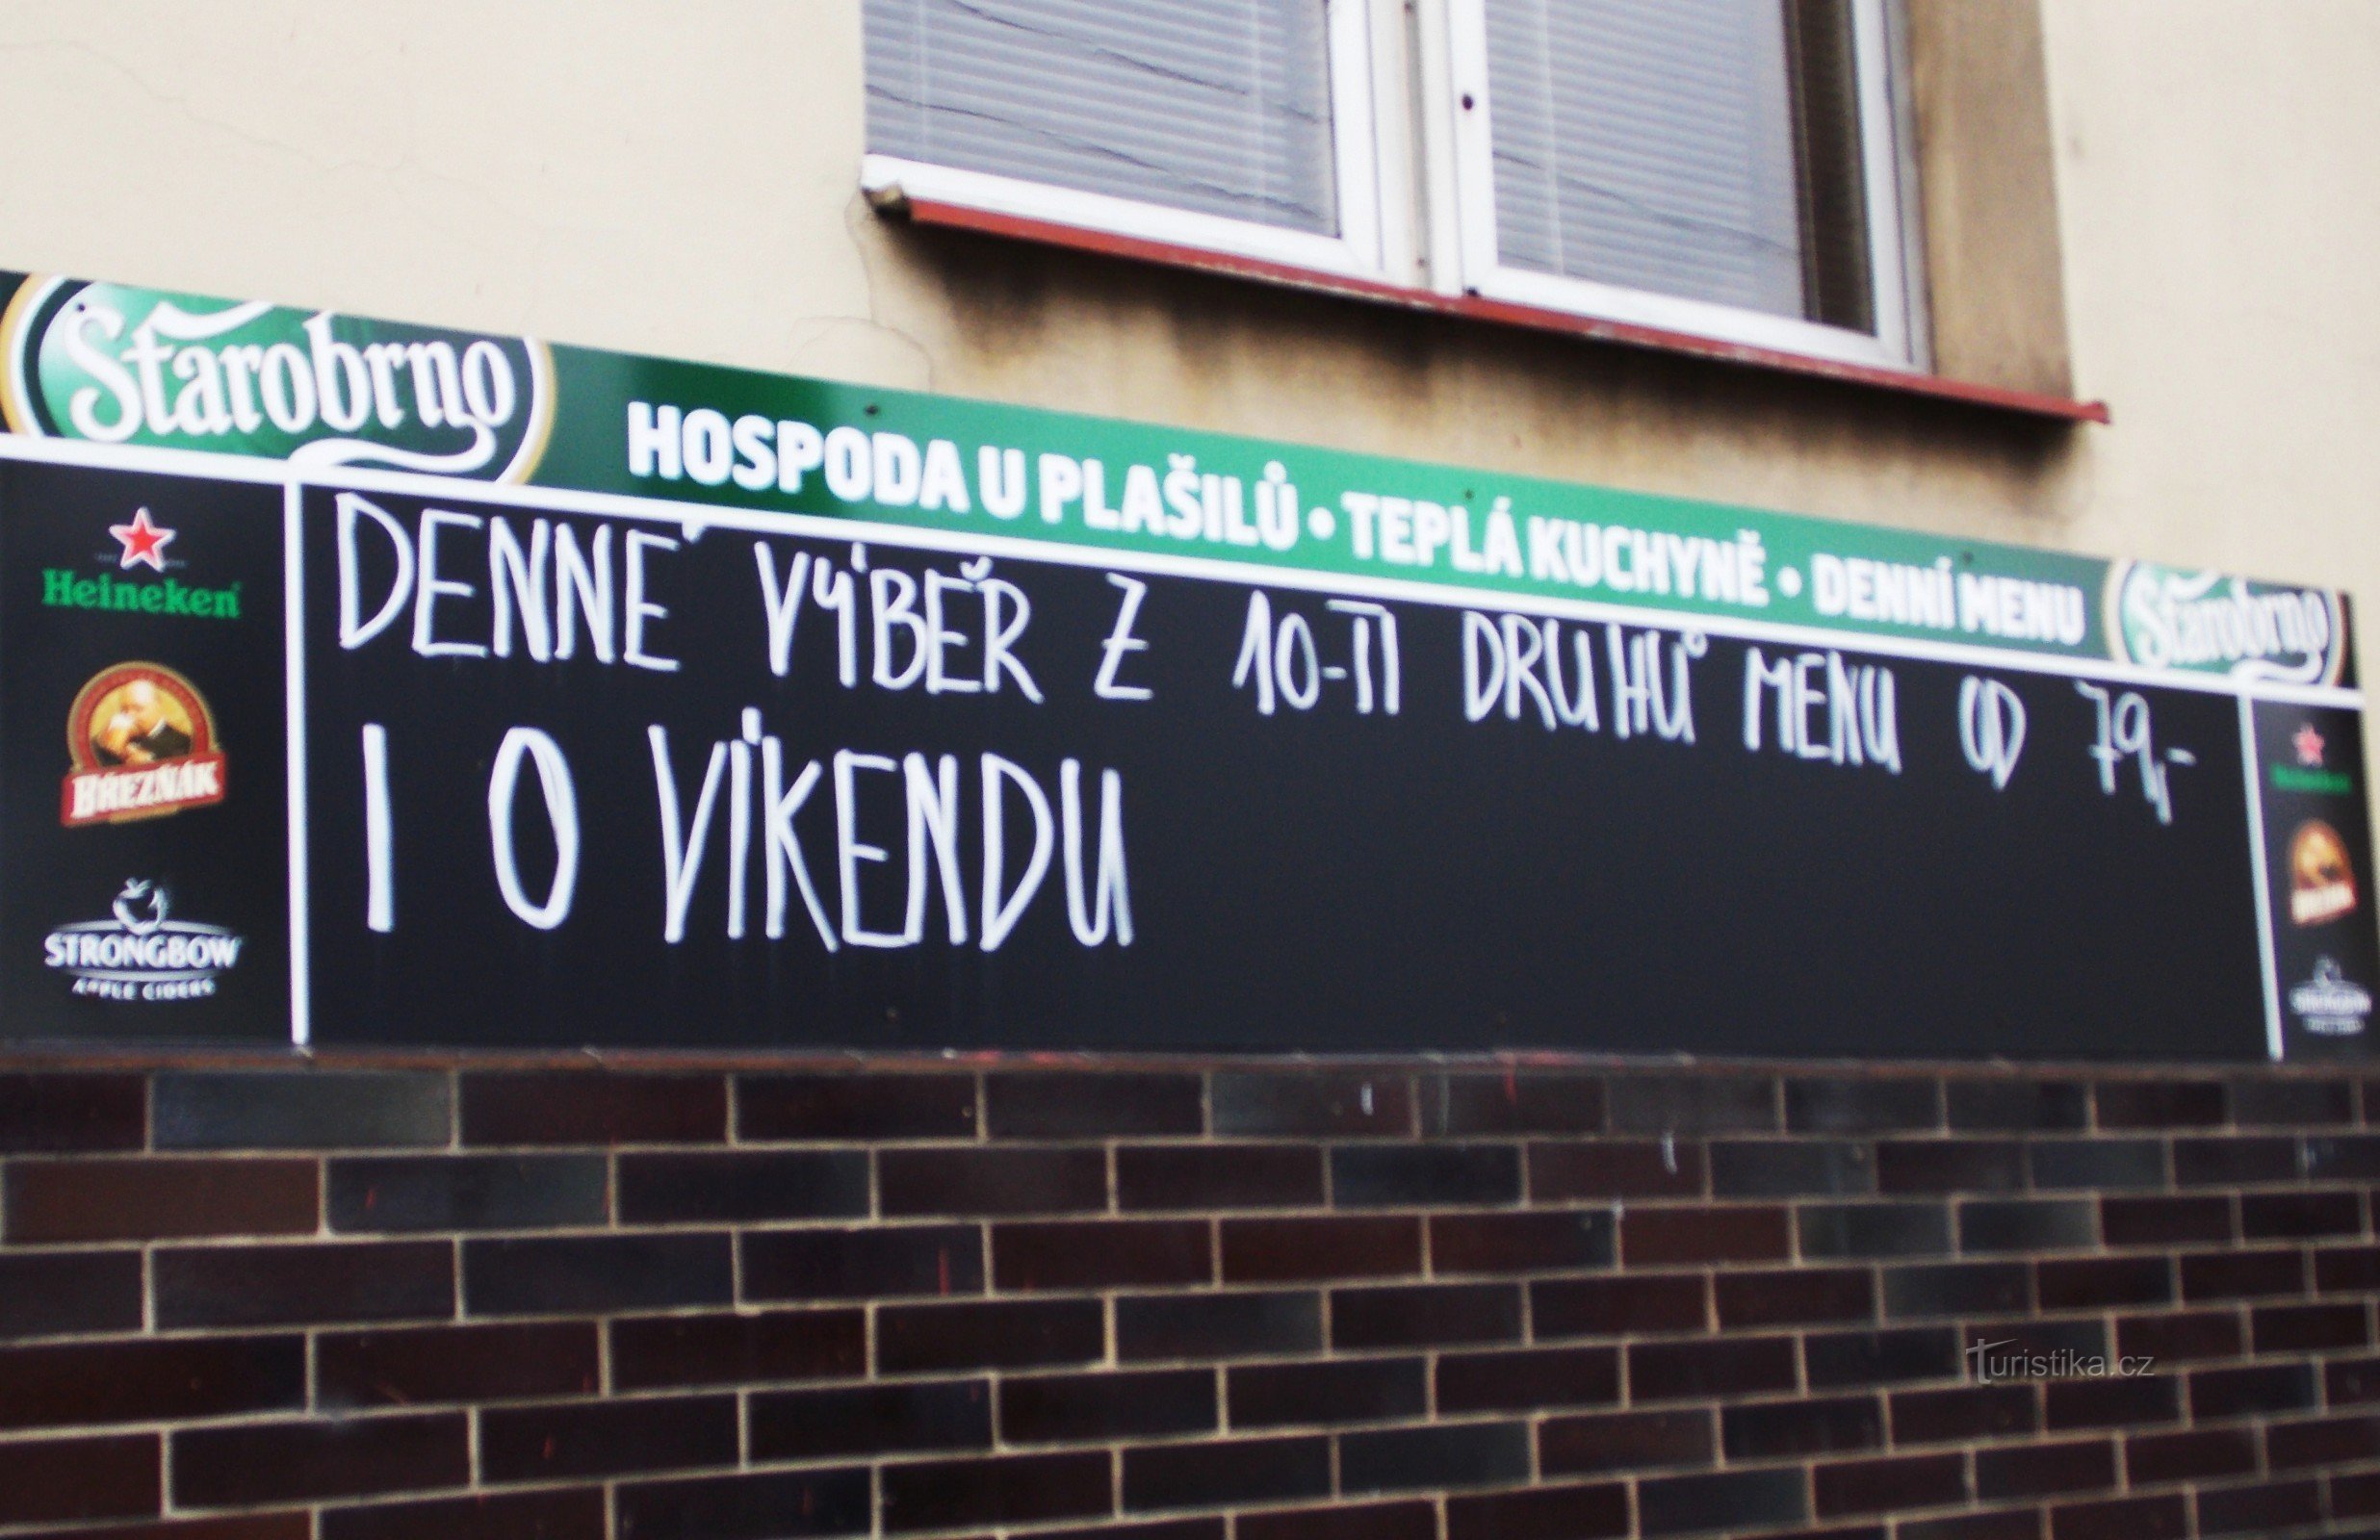 Starobrno HOSPODA U PLAŠILŮ • TEPLÁ KUCHYNĚ • DENNÍ MENU Starobrno
Heineken
BŘEZŇÁK
STRONGBOW
APPLE CIDERS
DENNĚ VÝBĚR Z 10-TI DRUHŮ MENU OD 79,-
I O VÍKENDU
Heineken
BŘEZŇÁK
STRONGBOW
turistika.cz